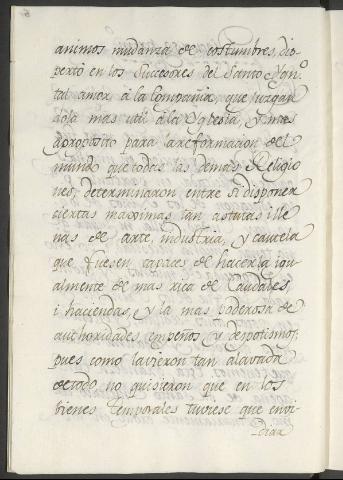 animos mudanza de costumbres, dis-
pertò en los Succesores del Santo Ygn.º
tal amor à la Compañia, que juzgan
dola mas util à la Yglesia, y mas
aproposito para la reformacion del
mundo que todas las demas Religio
nes; determinaron entre si disponer
ciertas maximas tan astutas i lle
nas de arte, industria, y cautela
que fuesen capaces de hacerla igu
almente de mas rica de Caudales,
i haciendas, y la mas poderosa de
authoridades, empeños y despotismos;
pues como la vieron tan alavada
de todo no quisieron que en los
bienes temporales tuviese que envi
-diar